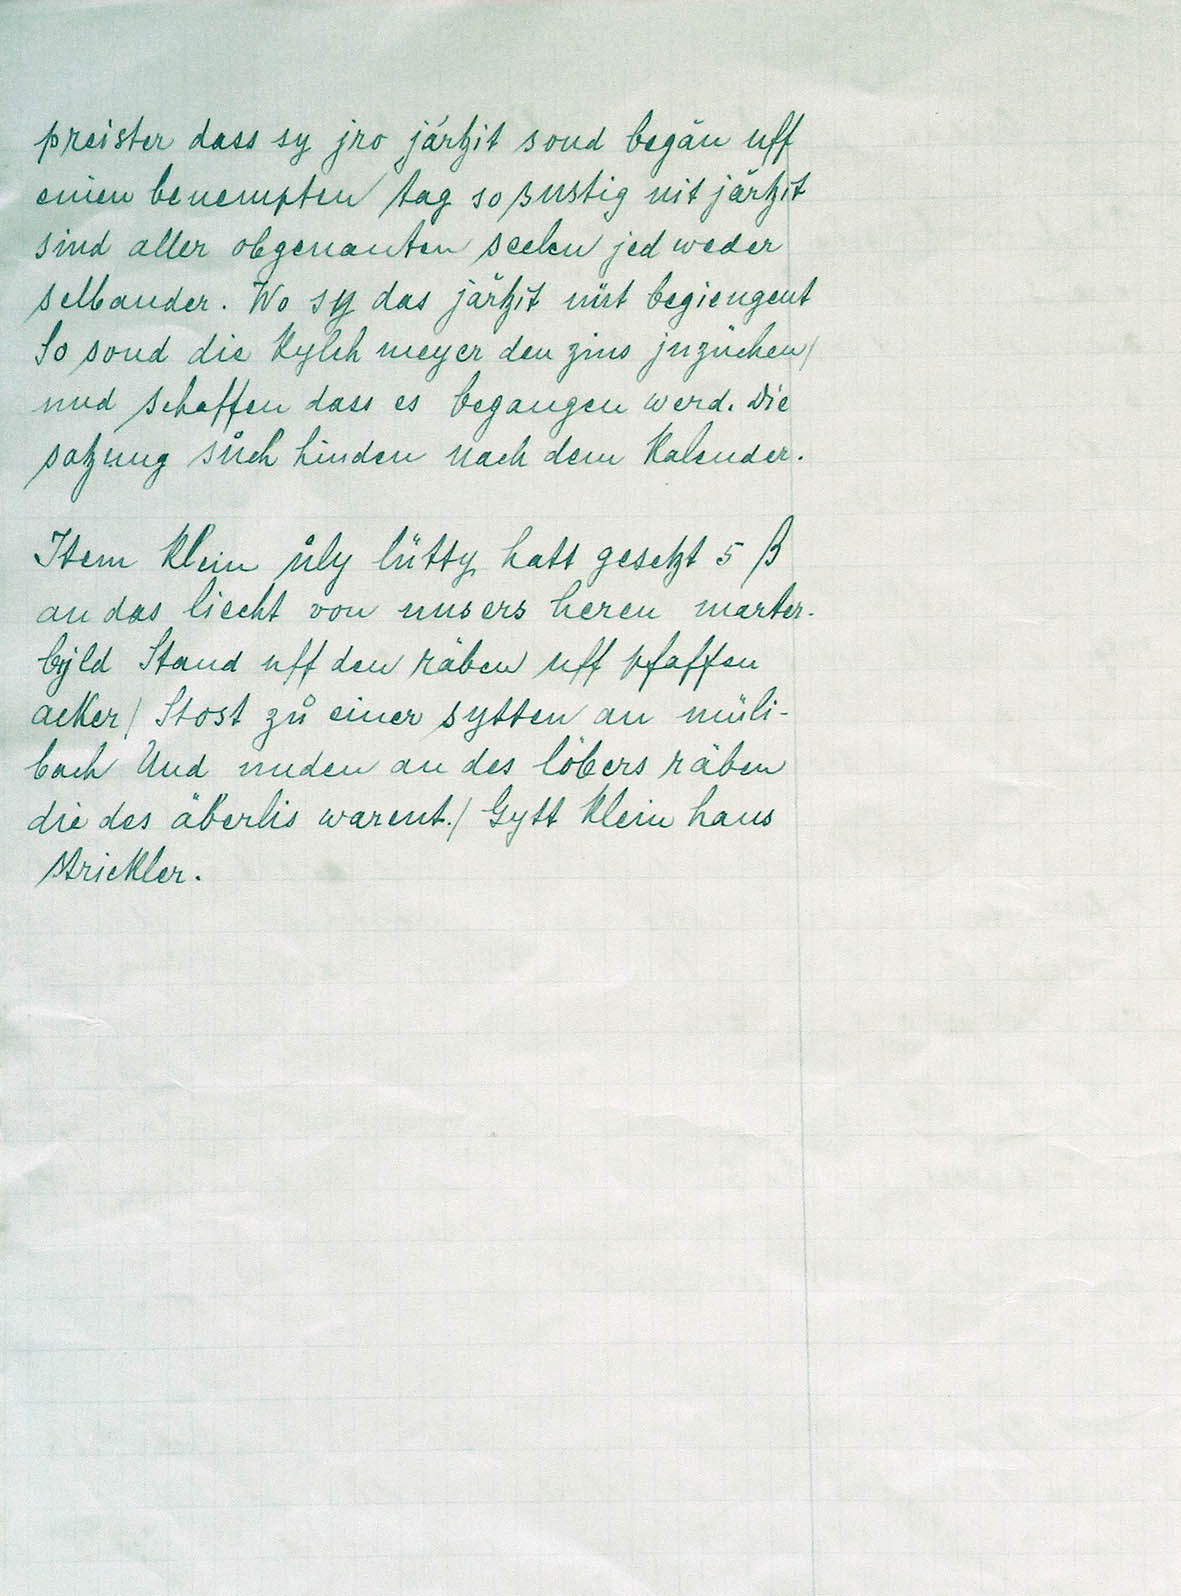 preister dass sy jro järtzit sond begän uff
einen benempten tag so sustig nit järtzit
sind aller obgenanten seelen jed weder
selbander. Wo sy das järtzit nüt begiengent
So sond die Kylch meyer den zins jnzüchen/
und schaffen dass es begangen werd. Die
satzung sůch hinden nach dem Kalender.

Item Klein ůly lütty hatt gesetzt 5 ß
an das liecht von unsers heren marter-
byld Stand uff den räben uff pfaffen
acker/ Stost zů einer sytten an müli-
bach Und unden an des löbers räben
die des äberlis warent./ Gytt Klein hans
strickler.